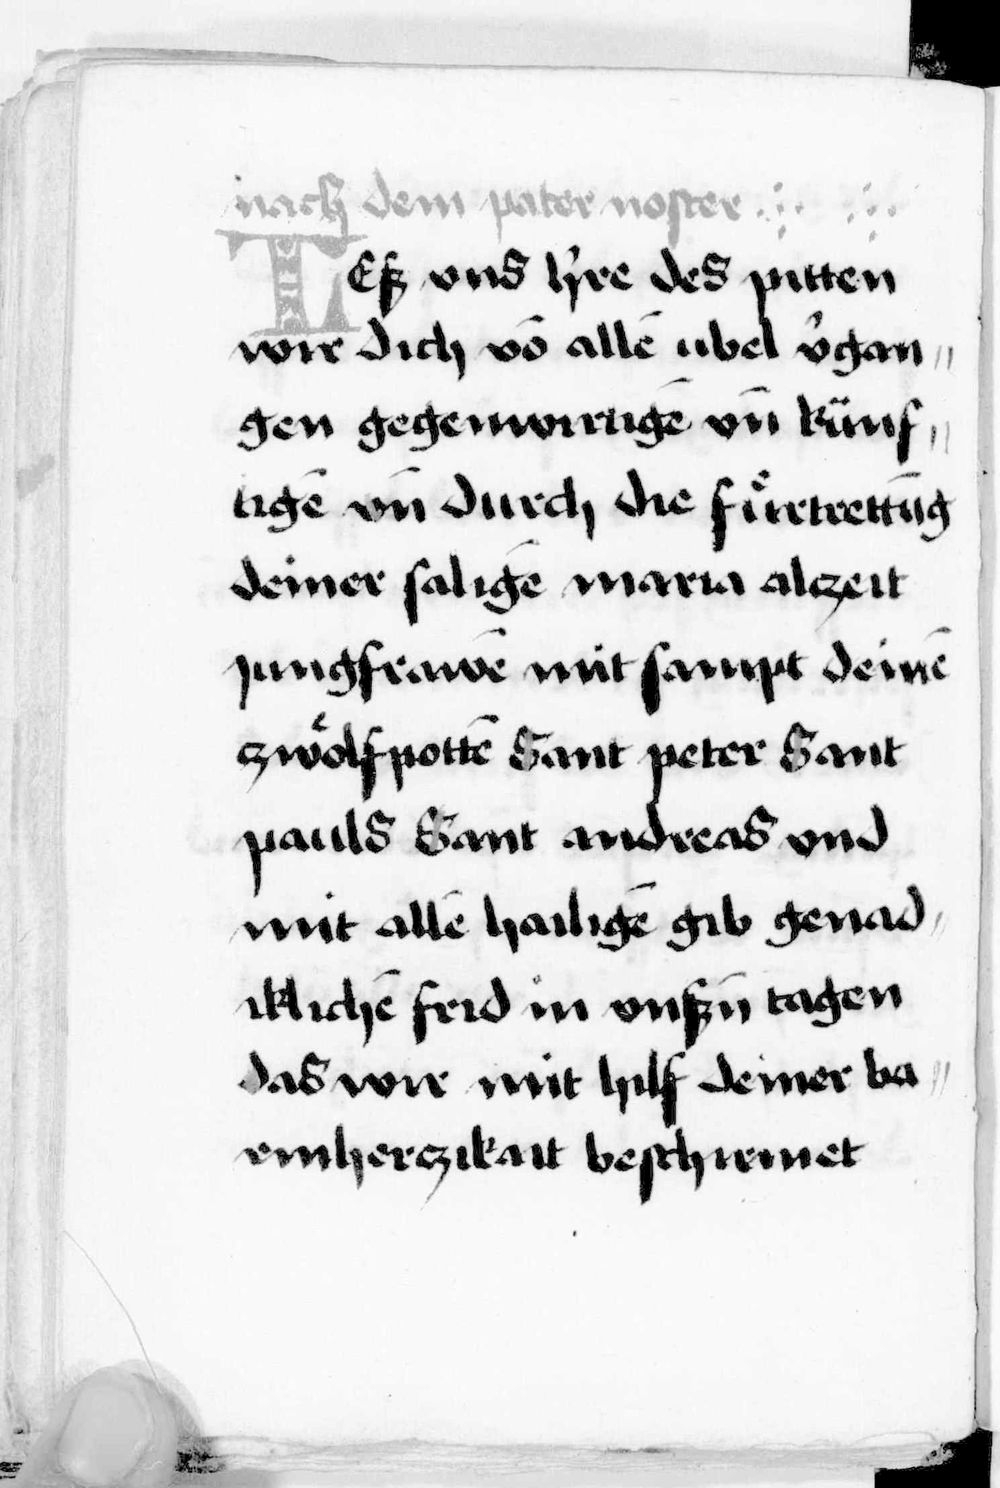 nach dem pater noster
LEß vns h're des pitten
wir dich vō allē ubel v'gan〃
gen gegenwirtigē vn̄ künf〃
tigē vn̄ durch die fuͤrtrettūg
deiner saligē maria alczeit
jungfrawē mit sampt deinē
zwoͤlfpottē Sant peter Sant
pauls Sant andreas vnd
mit allē hailigē gib genad〃
iklichē frid in vnßn̄ tagen
das wir mit hilf deiner ba〃
rmherczikait beschirmet